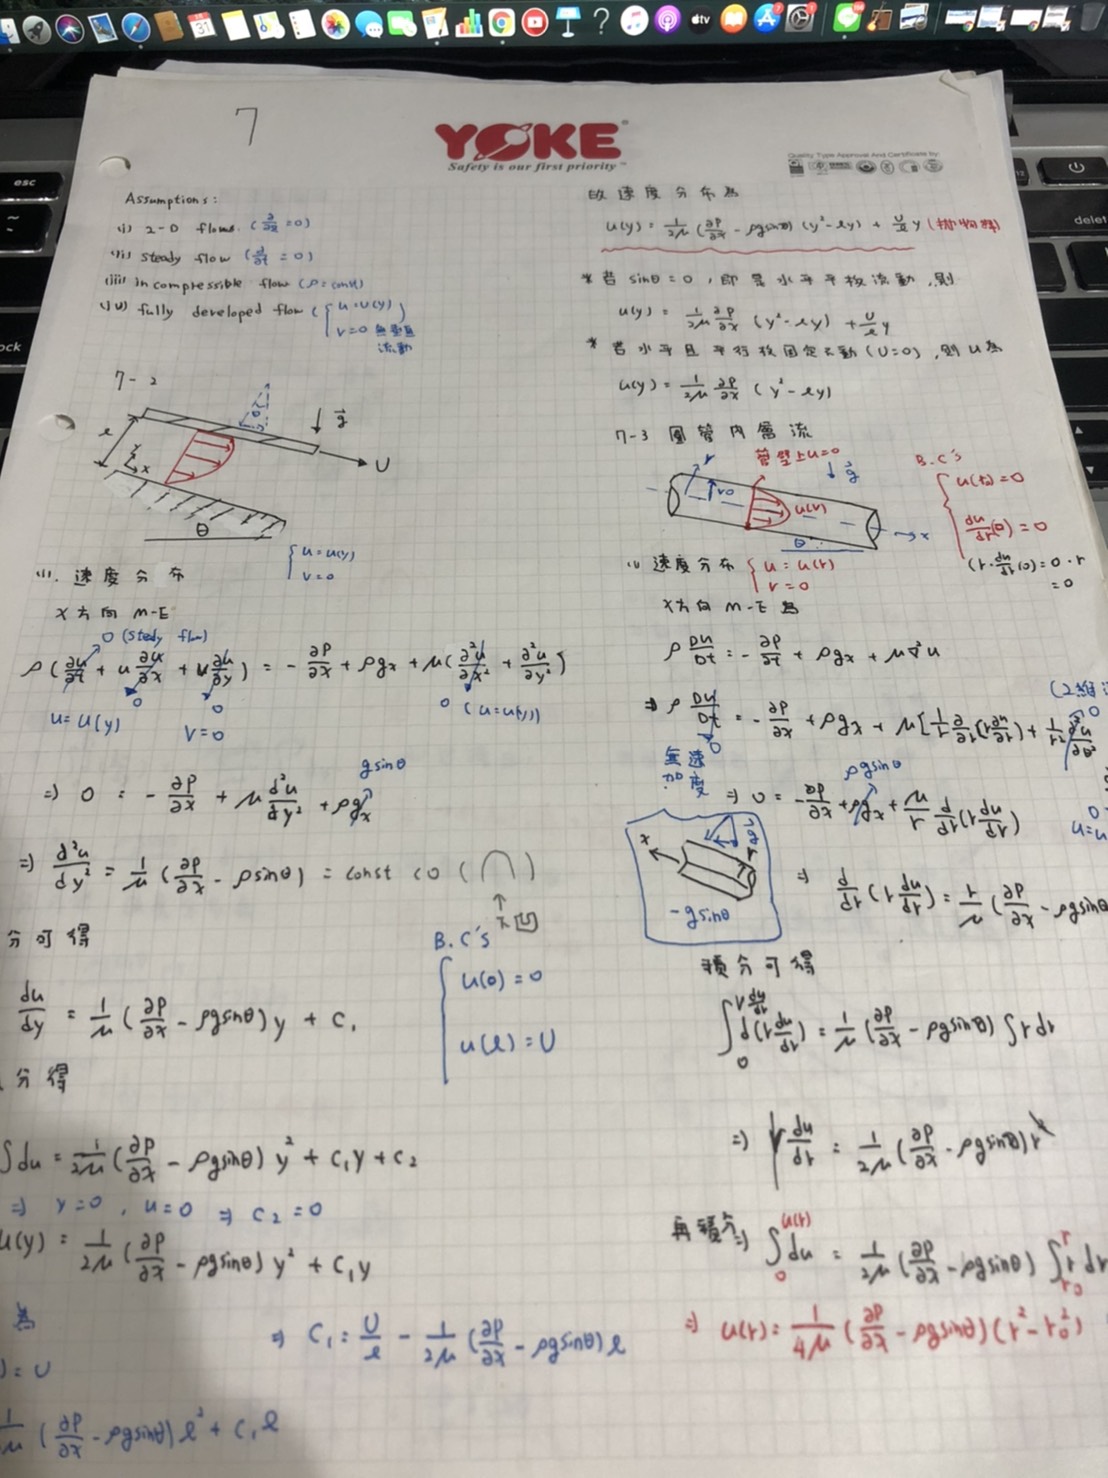 esc
delete
7
YOKE
Safety is our first priority™
Quality Type Approval And Certificate by:
Assumptions:
(i) 2-D flows. (∂/∂z = 0)
(ii) steady flow (∂/∂t = 0)
(iii) incompressible flow (ρ = const)
(iv) fully developed flow ( { u = u(y) )
v = 0 無垂直
流動
7-2
ℓ
y
x
θ
g
U
θ
{ u = u(y)
v = 0
(1). 速度分布
x方向 M-E
0 (stedy flow)
ρ(∂u/∂t + u ∂u/∂x + v ∂u/∂y) = -∂P/∂x + ρgx + μ(∂²u/∂x² + ∂²u/∂y²)
0
0
0 (u=u(y))
u = u(y)
v = 0
gsinθ
⇒ 0 = -∂P/∂x + μ d²u/dy² + ρgx
⇒ d²u/dy² = 1/μ (∂P/∂x - ρsinθ) = const < 0 ( ∩ )
↑
凹
分可得
B.C's
{ u(0) = 0
u(ℓ) = U
du/dy = 1/μ (∂P/∂x - ρgsinθ) y + C₁
分得
∫du = 1/2μ (∂P/∂x - ρgsinθ) y² + C₁y + C₂
⇒ y=0, u=0 ⇒ C₂ = 0
u(y) = 1/2μ (∂P/∂x - ρgsinθ) y² + C₁y
為
) = U
⇒ C₁ = U/ℓ - 1/2μ (∂P/∂x - ρgsinθ) ℓ
(∂P/∂x - ρgsinθ) ℓ² + C₁ℓ
故速度分布為
u(y) = 1/2μ (∂P/∂x - ρgsinθ) (y² - ℓy) + U/ℓ y (拋物線)
* 若 sinθ = 0, 即是水平平板流動, 則
u(y) = 1/2μ ∂P/∂x (y² - ℓy) + U/ℓ y
* 若水平且平行板固定不動 (U=0), 則 u 為
u(y) = 1/2μ ∂P/∂x (y² - ℓy)
7-3 圓管內層流
管壁上u=0
r
r₀
u(r)
g
θ
x
B.C's
{ u(r₀) = 0
du/dr(0) = 0
(r·du/dr(0) = 0·r
= 0
(1) 速度分布 { u = u(r)
v = 0
x方向 M-E 為
ρ Du/Dt = -∂P/∂t + ρgx + μ∇²u
⇒ ρ Du/Dt = -∂P/∂x + ρgx + μ[1/r ∂/∂r(r ∂u/∂r) + 1/r² ∂²u/∂θ²
(2維
0
0
無加速度
ρgsinθ
⇒ 0 = -∂P/∂x + ρgx + μ/r d/dr(r du/dr)
x
-gsinθ
⇒ d/dr(r du/dr) = r/μ (∂P/∂x - ρgsinθ
積分可得
∫₀^(r du/dr) d(r du/dr) = 1/μ (∂P/∂x - ρgsinθ) ∫r dr
⇒ r du/dr = 1/2μ (∂P/∂x - ρgsinθ) r²
再積分⇒ ∫₀^u(r) du = 1/2μ (∂P/∂x - ρgsinθ) ∫_r₀^r r dr
⇒ u(r) = 1/4μ (∂P/∂x - ρgsinθ) (r² - r₀²)